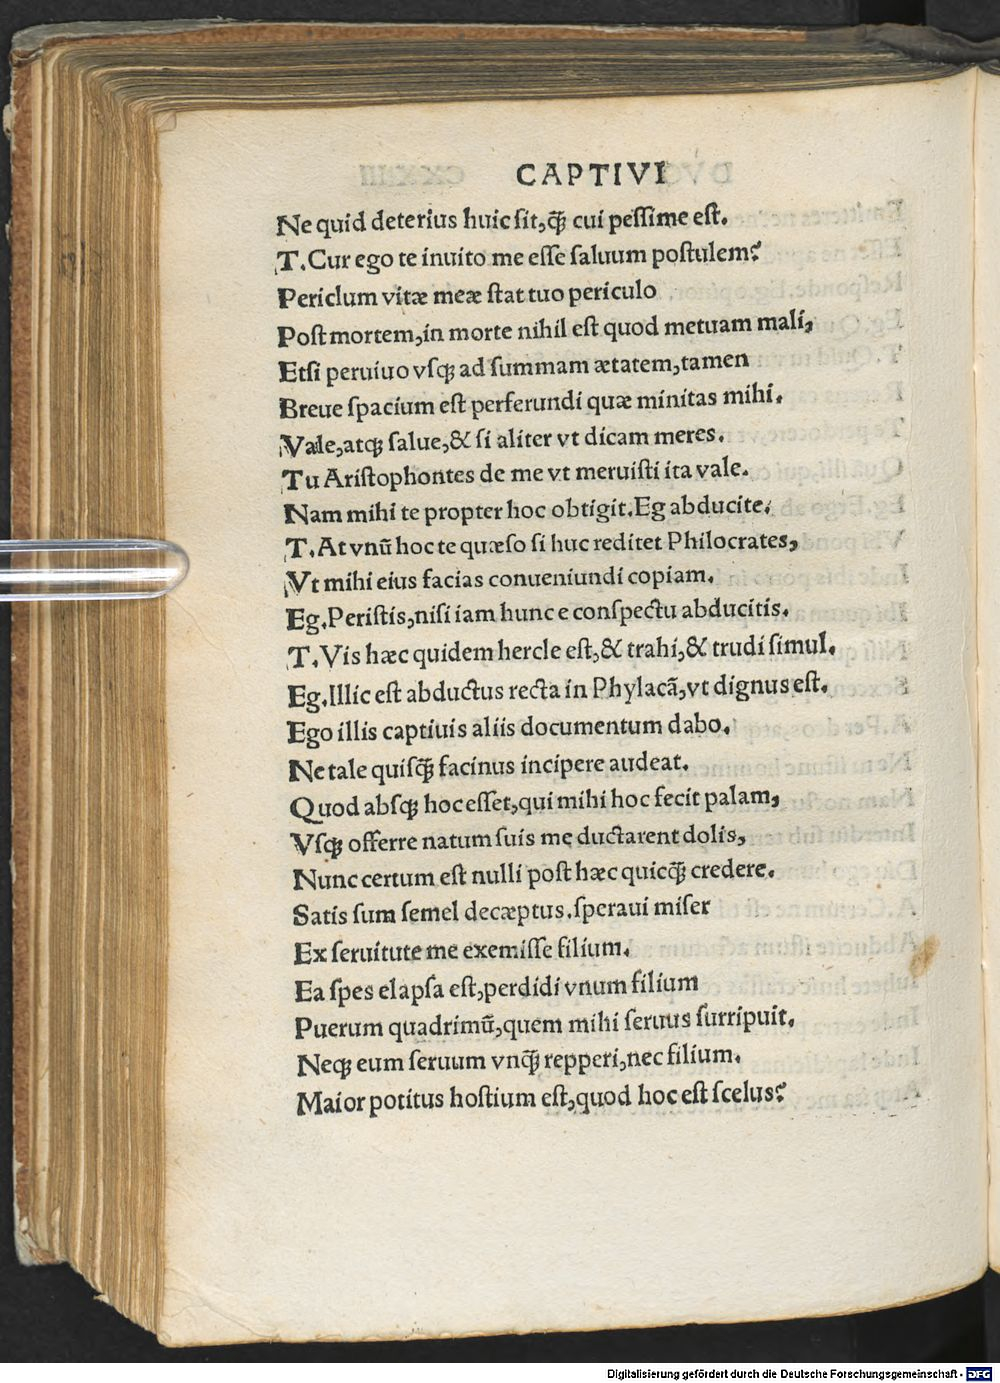 CAPTIVI
Ne quid deterius huic sit, qꝫ̃ cui pessime est.
T. Cur ego te inuito me esse saluum postulem?
Periclum vitæ meæ stat tuo periculo
Post mortem, in morte nihil est quod metuam mali,
Etsi peruiuo vsqꝫ ad summam ætatem, tamen
Breue spacium est perferundi quæ minitas mihi.
Vale, atqꝫ salue, & si aliter vt dicam meres.
Tu Aristophontes de me vt meruisti ita vale.
Nam mihi te propter hoc obtigit. Eg abducite.
T. At vnũ hoc te quæso si huc reditet Philocrates,
Vt mihi eius facias conueniundi copiam.
Eg. Peristis, nisi iam hunc e conspectu abducitis.
T. Vis hæc quidem hercle est, & trahi, & trudi simul.
Eg. Illic est abductus recta in Phylacã, vt dignus est.
Ego illis captiuis aliis documentum dabo.
Ne tale quisqꝫ̃ facinus incipere audeat.
Quod absqꝫ hoc esset, qui mihi hoc fecit palam,
Vsqꝫ offerre natum suis me ductarent dolis,
Nunc certum est nulli post hæc quicqꝫ̃ credere.
Satis sum semel decæptus. speraui miser
Ex seruitute me exemisse filium.
Ea spes elapsa est, perdidi vnum filium
Puerum quadrimũ, quem mihi seruus surripuit.
Neqꝫ eum seruum vnqꝫ̃ repperi, nec filium.
Maior potitus hostium est, quod hoc est scelus?
Digitalisierung gefördert durch die Deutsche Forschungsgemeinschaft - DFG